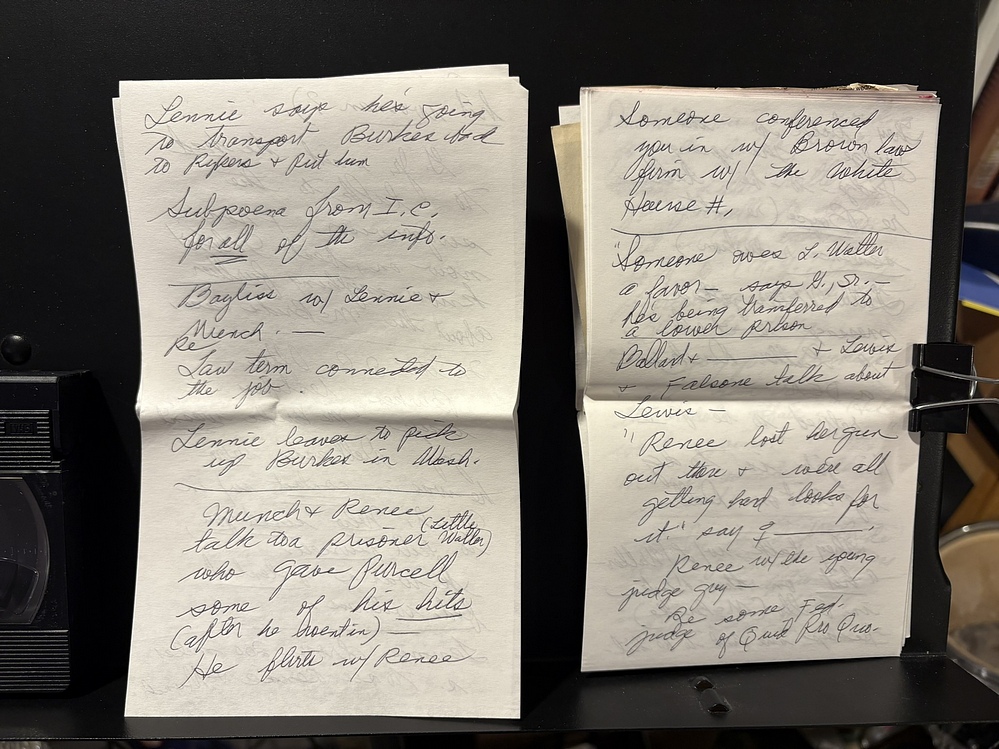 Lennie says he's going
to transport Burkes
to Rikers + put him
Subpoena from I.C.
for all of the info.
Bayliss w/ Lennie +
Munch. —
Re
Law term connected to
the job.
Lennie leaves to pick
up Burkes in Wash.
Munch + Renee
talk to a prisoner (Little
Walter)
who gave Purcell
some of his hits
(after he went in) —
He flirts w/ Renee
Someone conferenced
you in w/ Brown law
firm w/ the White
House #.
"Someone owes L. Walter
a favor — says G., Sr. —
he's being transferred to
a lower prison
Ballard + ——— + Lewis
+ Falsone talk about
Lewis —
"Renee lost her gun
out there + we're all
getting hard looks for
it" say G ———.
Renee w/ the young
judge guy —
Re some Fed.
judge of Quid Pro Quo.